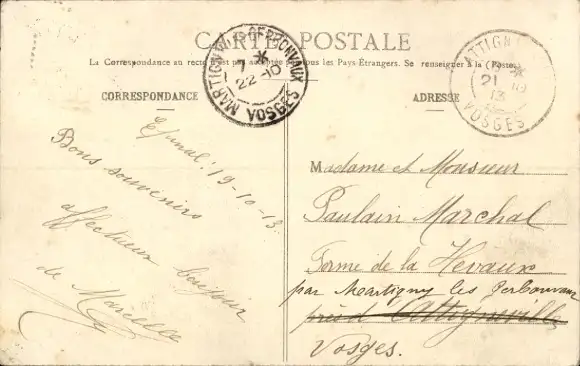 CARTE POSTALE
La Correspondance au recto n'est pas acceptée par tous les Pays-Étrangers. Se renseigner à la (Poste)
CORRESPONDANCE
ADRESSE
MARTIGNY-LES-GERBONVAUX
7 *
22-10
VOSGES
ATTIGN
21 10
13
VOSGES
Epinal, 19-10-13
Bons souvenirs
affectueux bonjour
de Marcelle
Madame et Monsieur
Paulain Marchal
Ferme de la Hevaux
par Martigny les Gerbonvaux
près d'Attignéville
Vosges.